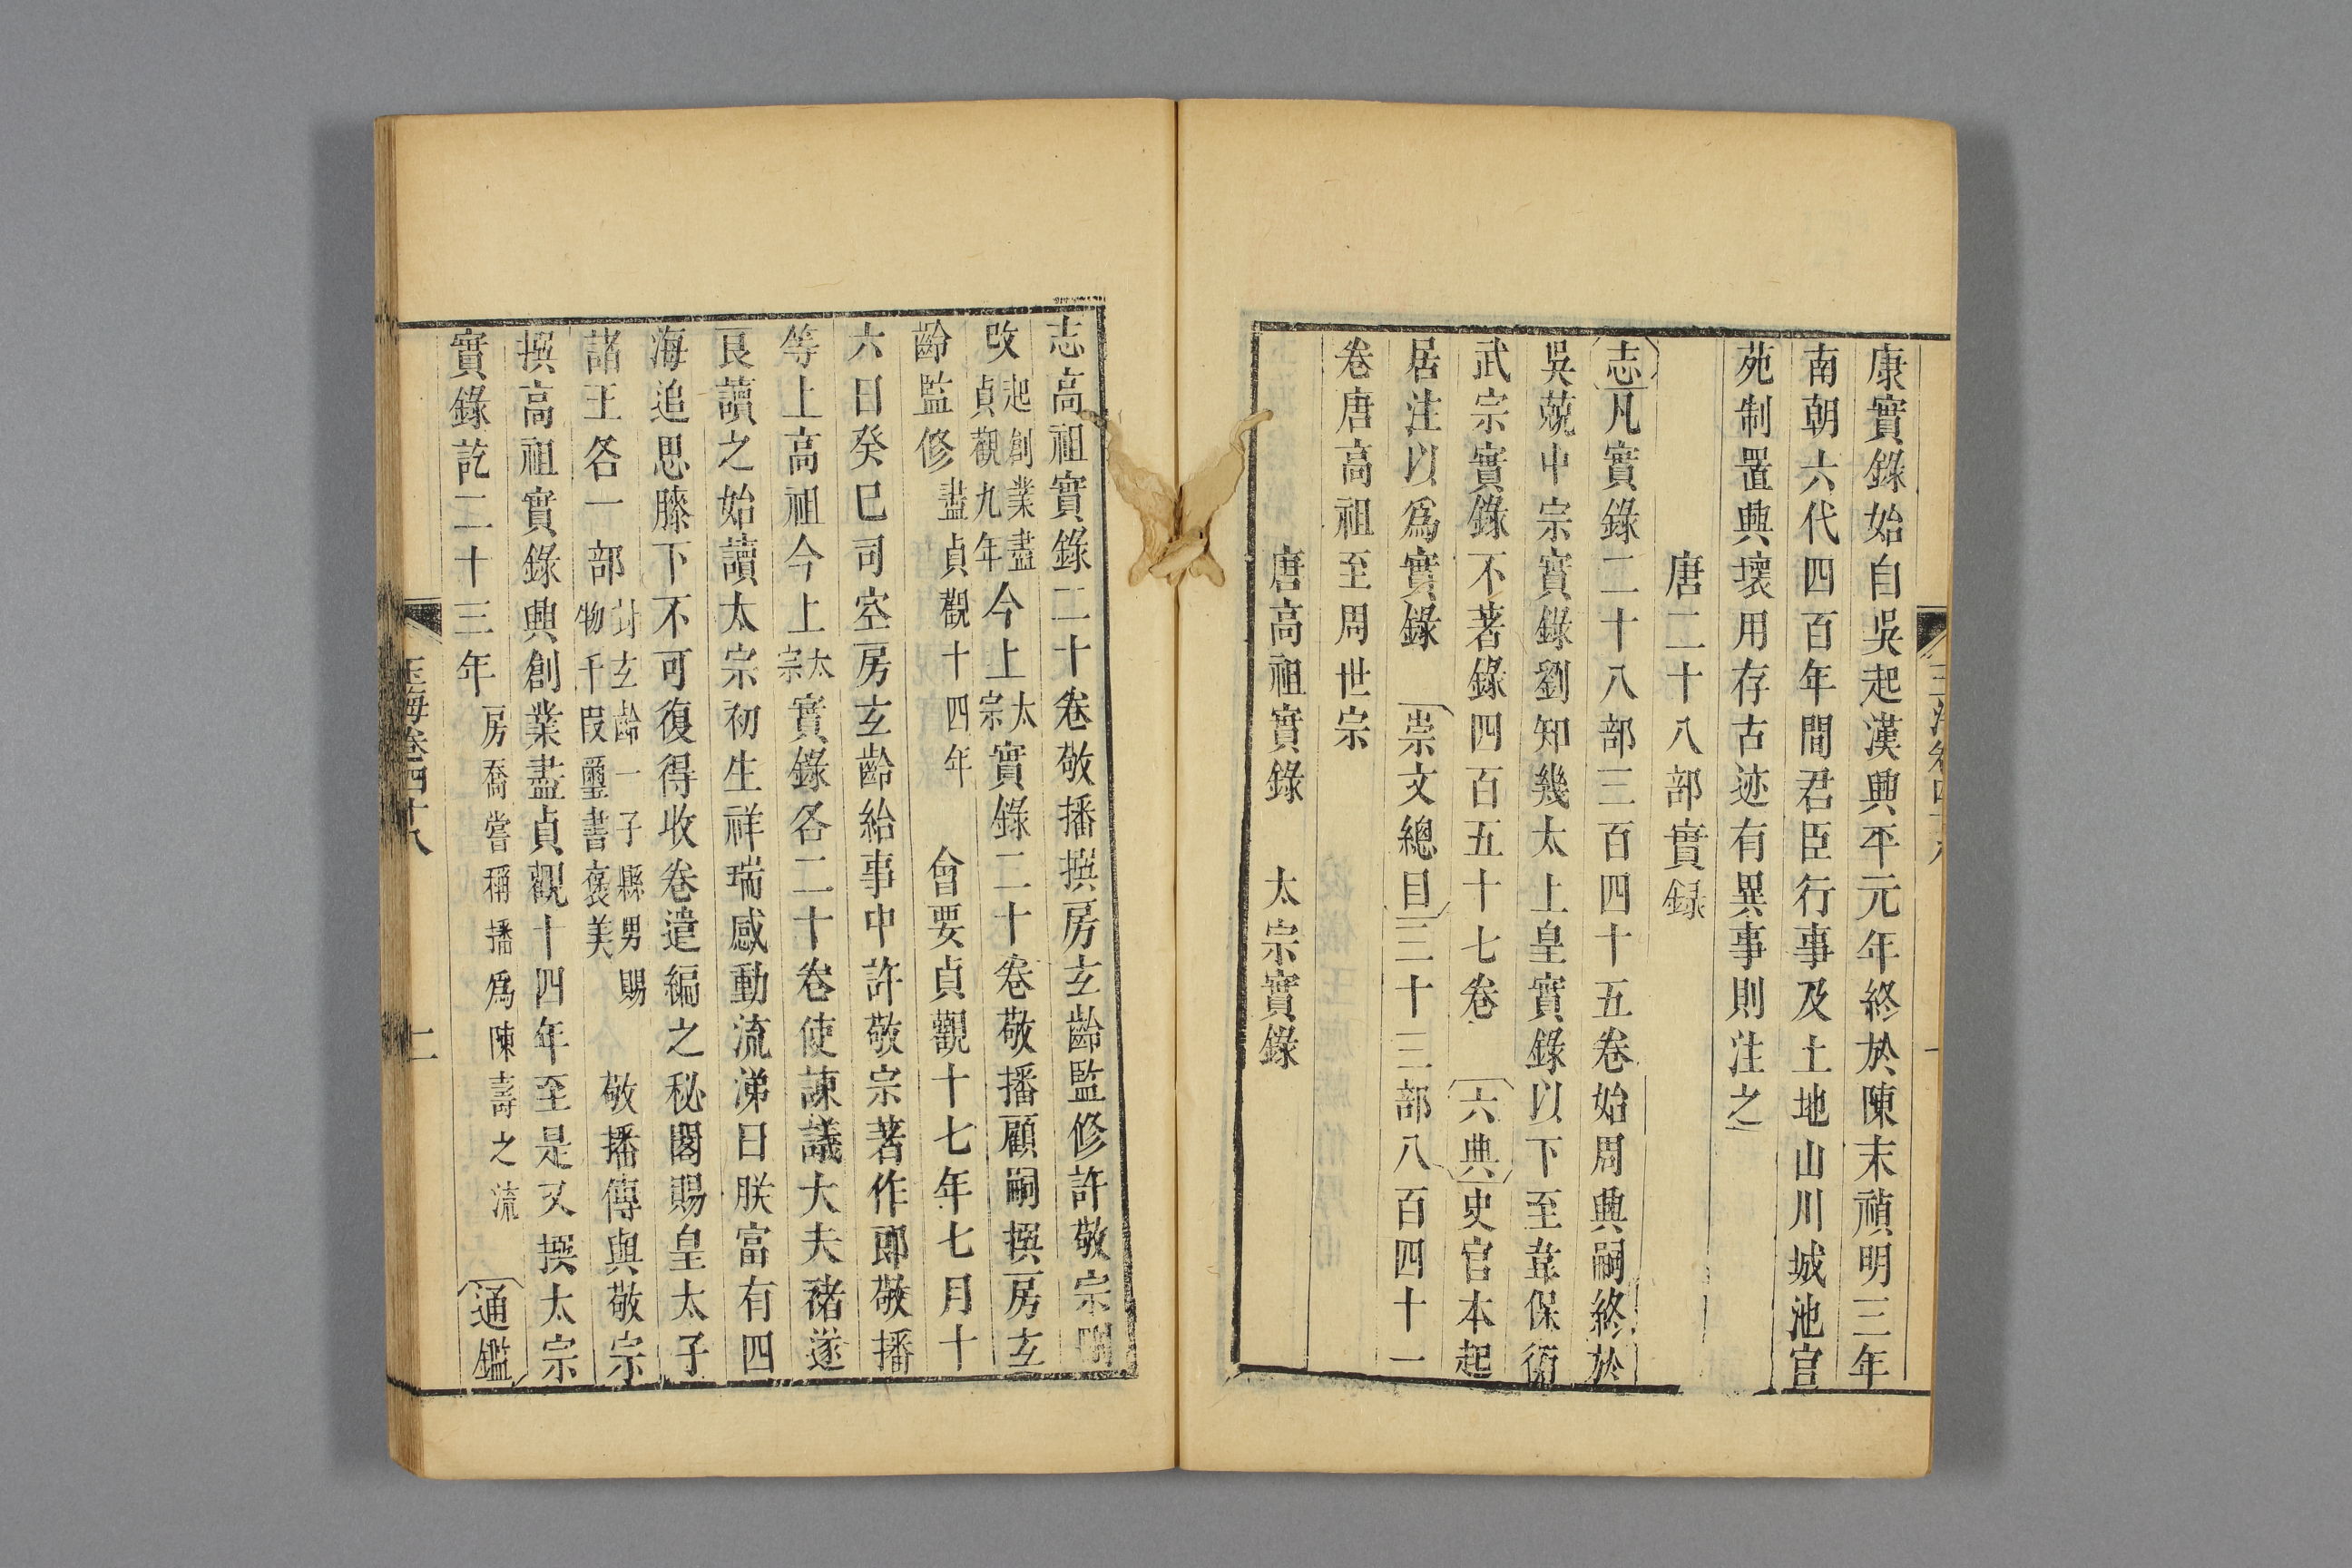 康實錄始自吳起漢興平元年終於陳末禎明三年
南朝六代四百年間君臣行事及土地山川城池官
苑制置興壞用存古迹有異事則注之
唐二十八部實録
志凡實錄二十八部三百四十五卷始周興嗣終於
吳兢中宗實錄劉知幾太上皇實錄以下至韋保衡
武宗實錄不著錄四百五十七卷 六典史官本起
居注以爲實錄 崇文總目三十三部八百四十一
卷唐高祖至周世宗
唐高祖實錄 太宗實錄
志高祖實錄二十卷敬播撰房玄齡監修許敬宗刪
改起創業盡貞觀九年今上太宗實錄二十卷敬播顧嗣撰房玄
齡監修盡貞觀十四年 會要貞觀十七年七月十
六日癸巳司空房玄齡給事中許敬宗著作郎敬播
等上高祖今上太宗實錄各二十卷使諫議大夫褚遂
良讀之始讀太宗初生祥瑞感動流涕曰朕富有四
海追思膝下不可復得收卷遣編之秘閣賜皇太子
諸王各一部封玄齡一子縣男賜物千段璽書褒美 敬播傳與敬宗
撰高祖實錄興創業盡貞觀十四年至是又撰太宗
實錄訖二十三年房喬嘗稱播爲陳壽之流 通鑑
玉海卷四十八
二